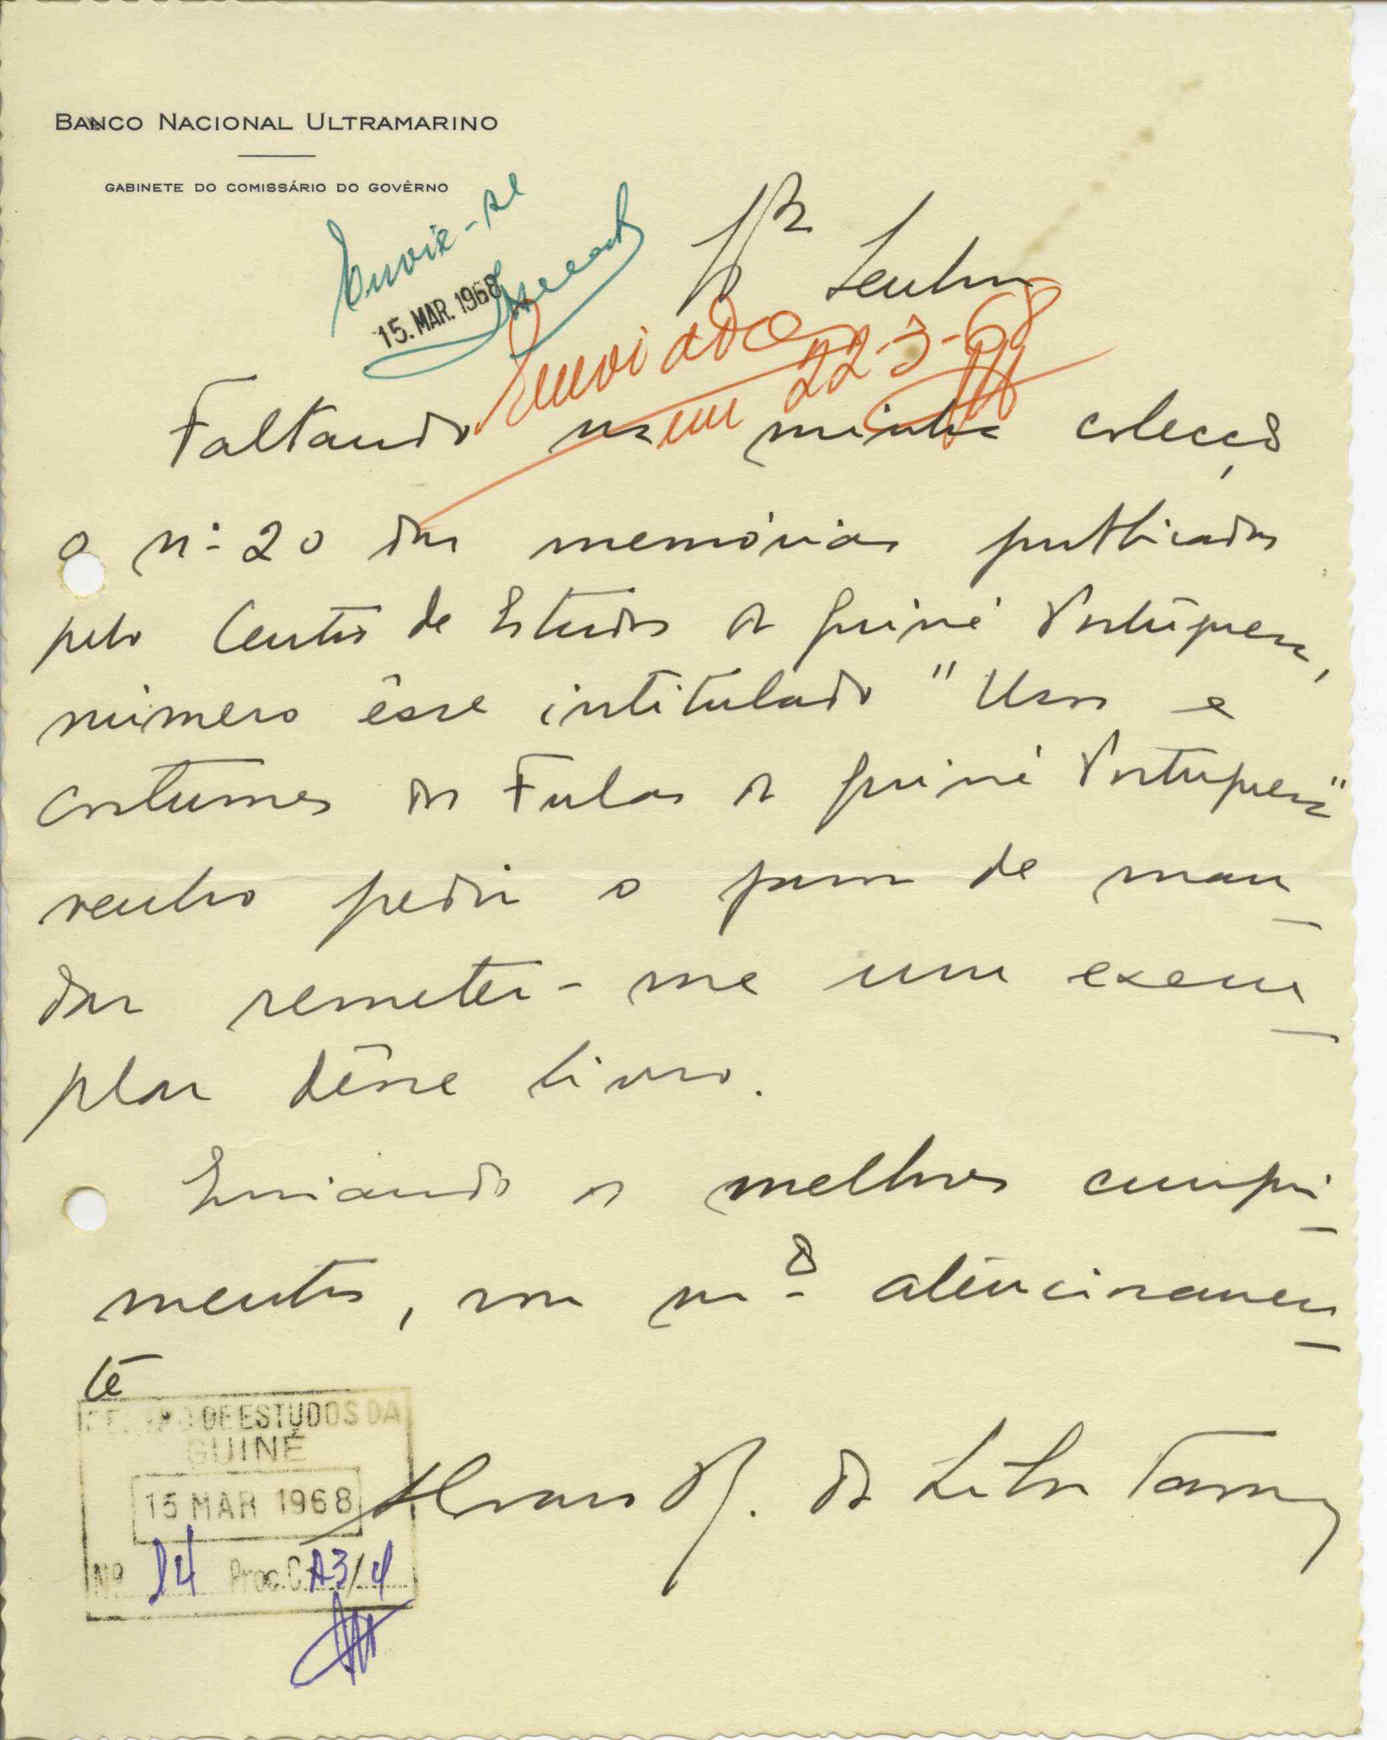 BANCO NACIONAL ULTRAMARINO
GABINETE DO COMISSÁRIO DO GOVÊRNO
Envie-se
15. MAR. 1968
Enviado
em 22-3-68
Faltando na minha colecção
o nº 20 das memórias publicadas
pelo Centro de Estudos da Guiné Portuguesa,
número êsse intitulado "Usos e
costumes dos Fulas da Guiné Portuguesa"
venho pedir o favor de man-
dar remeter-me um exem-
plar dêsse livro.
Enviando os melhores cumpri-
mentos, sou mº atenciosamen-
te
CENTRO DE ESTUDOS DA
GUINÉ
15 MAR 1968
da Silva Tavares
Nº 24 Proc. C. A3/4